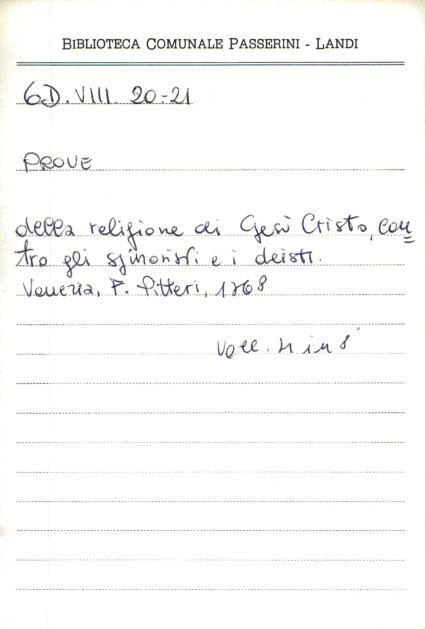 BIBLIOTECA COMUNALE PASSERINI - LANDI
6D. VIII. 20-21
PROVE
della religione di Gesù Cristo, con=
tro gli spinosisti e i deisti.
Venezia, F. Pitteri, 1768
Voll. 4 in 8°